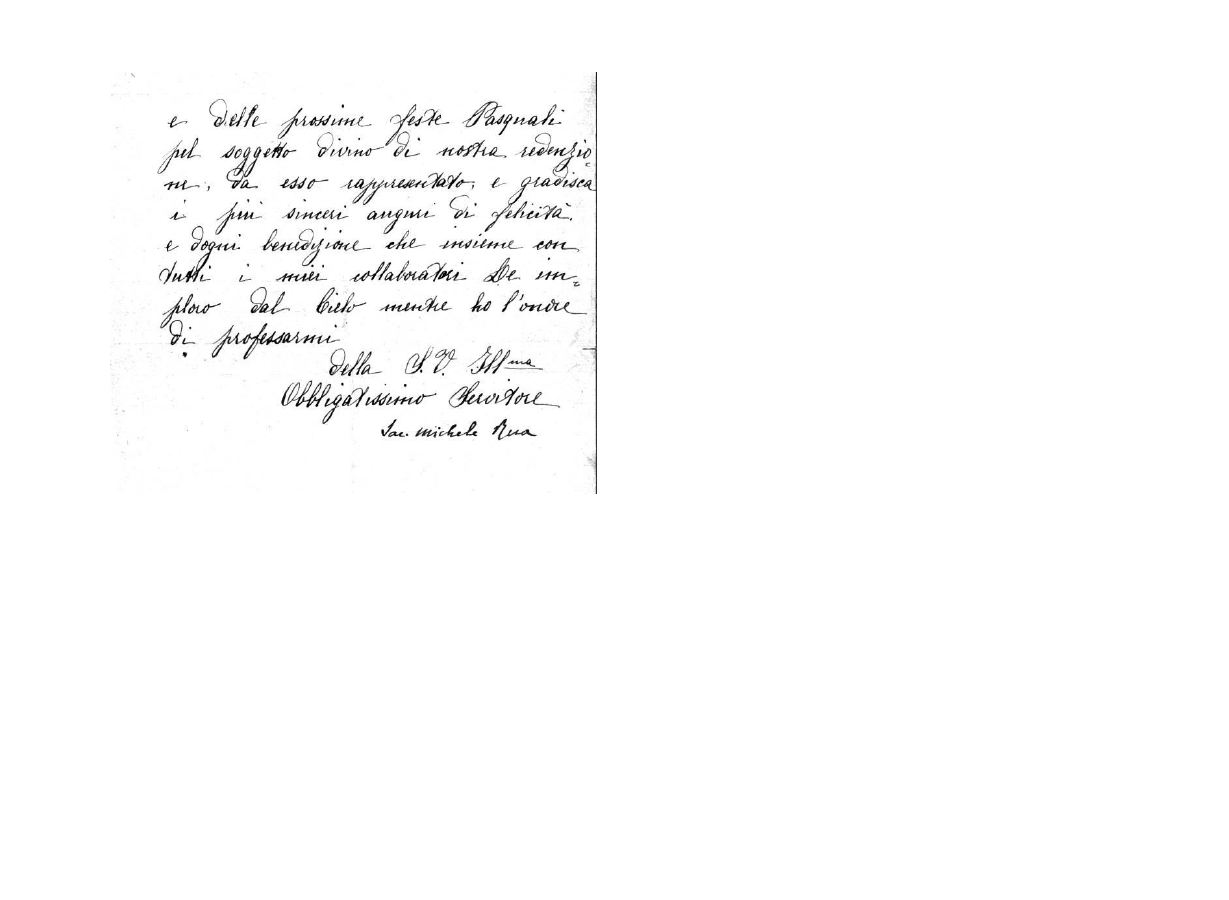 e delle prossime feste Pasquali
pel soggetto divino di nostra redenzio=
ne, da esso rappresentato, e gradisca
i più sinceri auguri di felicità,
e dogni benedizione che insieme con
tutti i miei collaboratori Le im=
ploro dal Cielo mentre ho l'onore
di professarmi
della S. V. Ill^ma
Obbligatissimo Servitore
Sac. Michele Rua